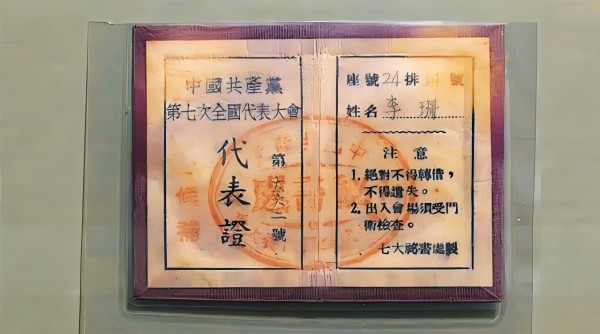 中國共產黨
第七次全國代表大會
代表證
候補
座號24排 號
姓名 李
注意
1. 絕對不得轉借，
不得遺失。
2. 出入會場須受門
衛檢查。
七大祕書處製